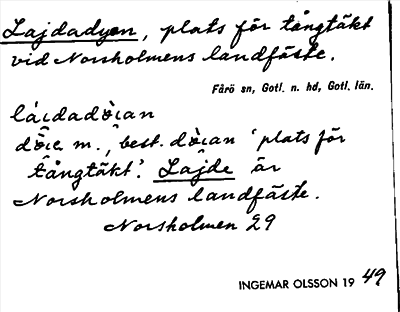 Lajdadyen, plats för tångtäkt
vid Norsholmens landfäste.
Fårö sn, Gotl. n. hd, Gotl. län.
láidadòian
dòie m., best. dòian 'plats för
tångtäkt'. Lajde är
Norsholmens landfäste.
Norsholmen 29
INGEMAR OLSSON 1949